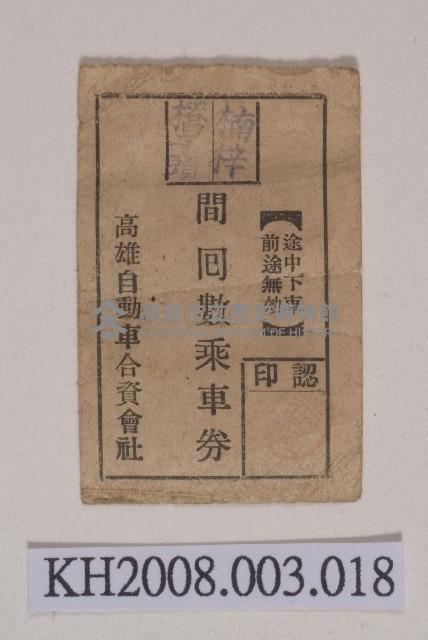 楠梓
橋頭
間回數乘車券
途中下車
前途無效
認印
高雄自動車合資會社
高雄市立歷史博物館
KH2008.003.018